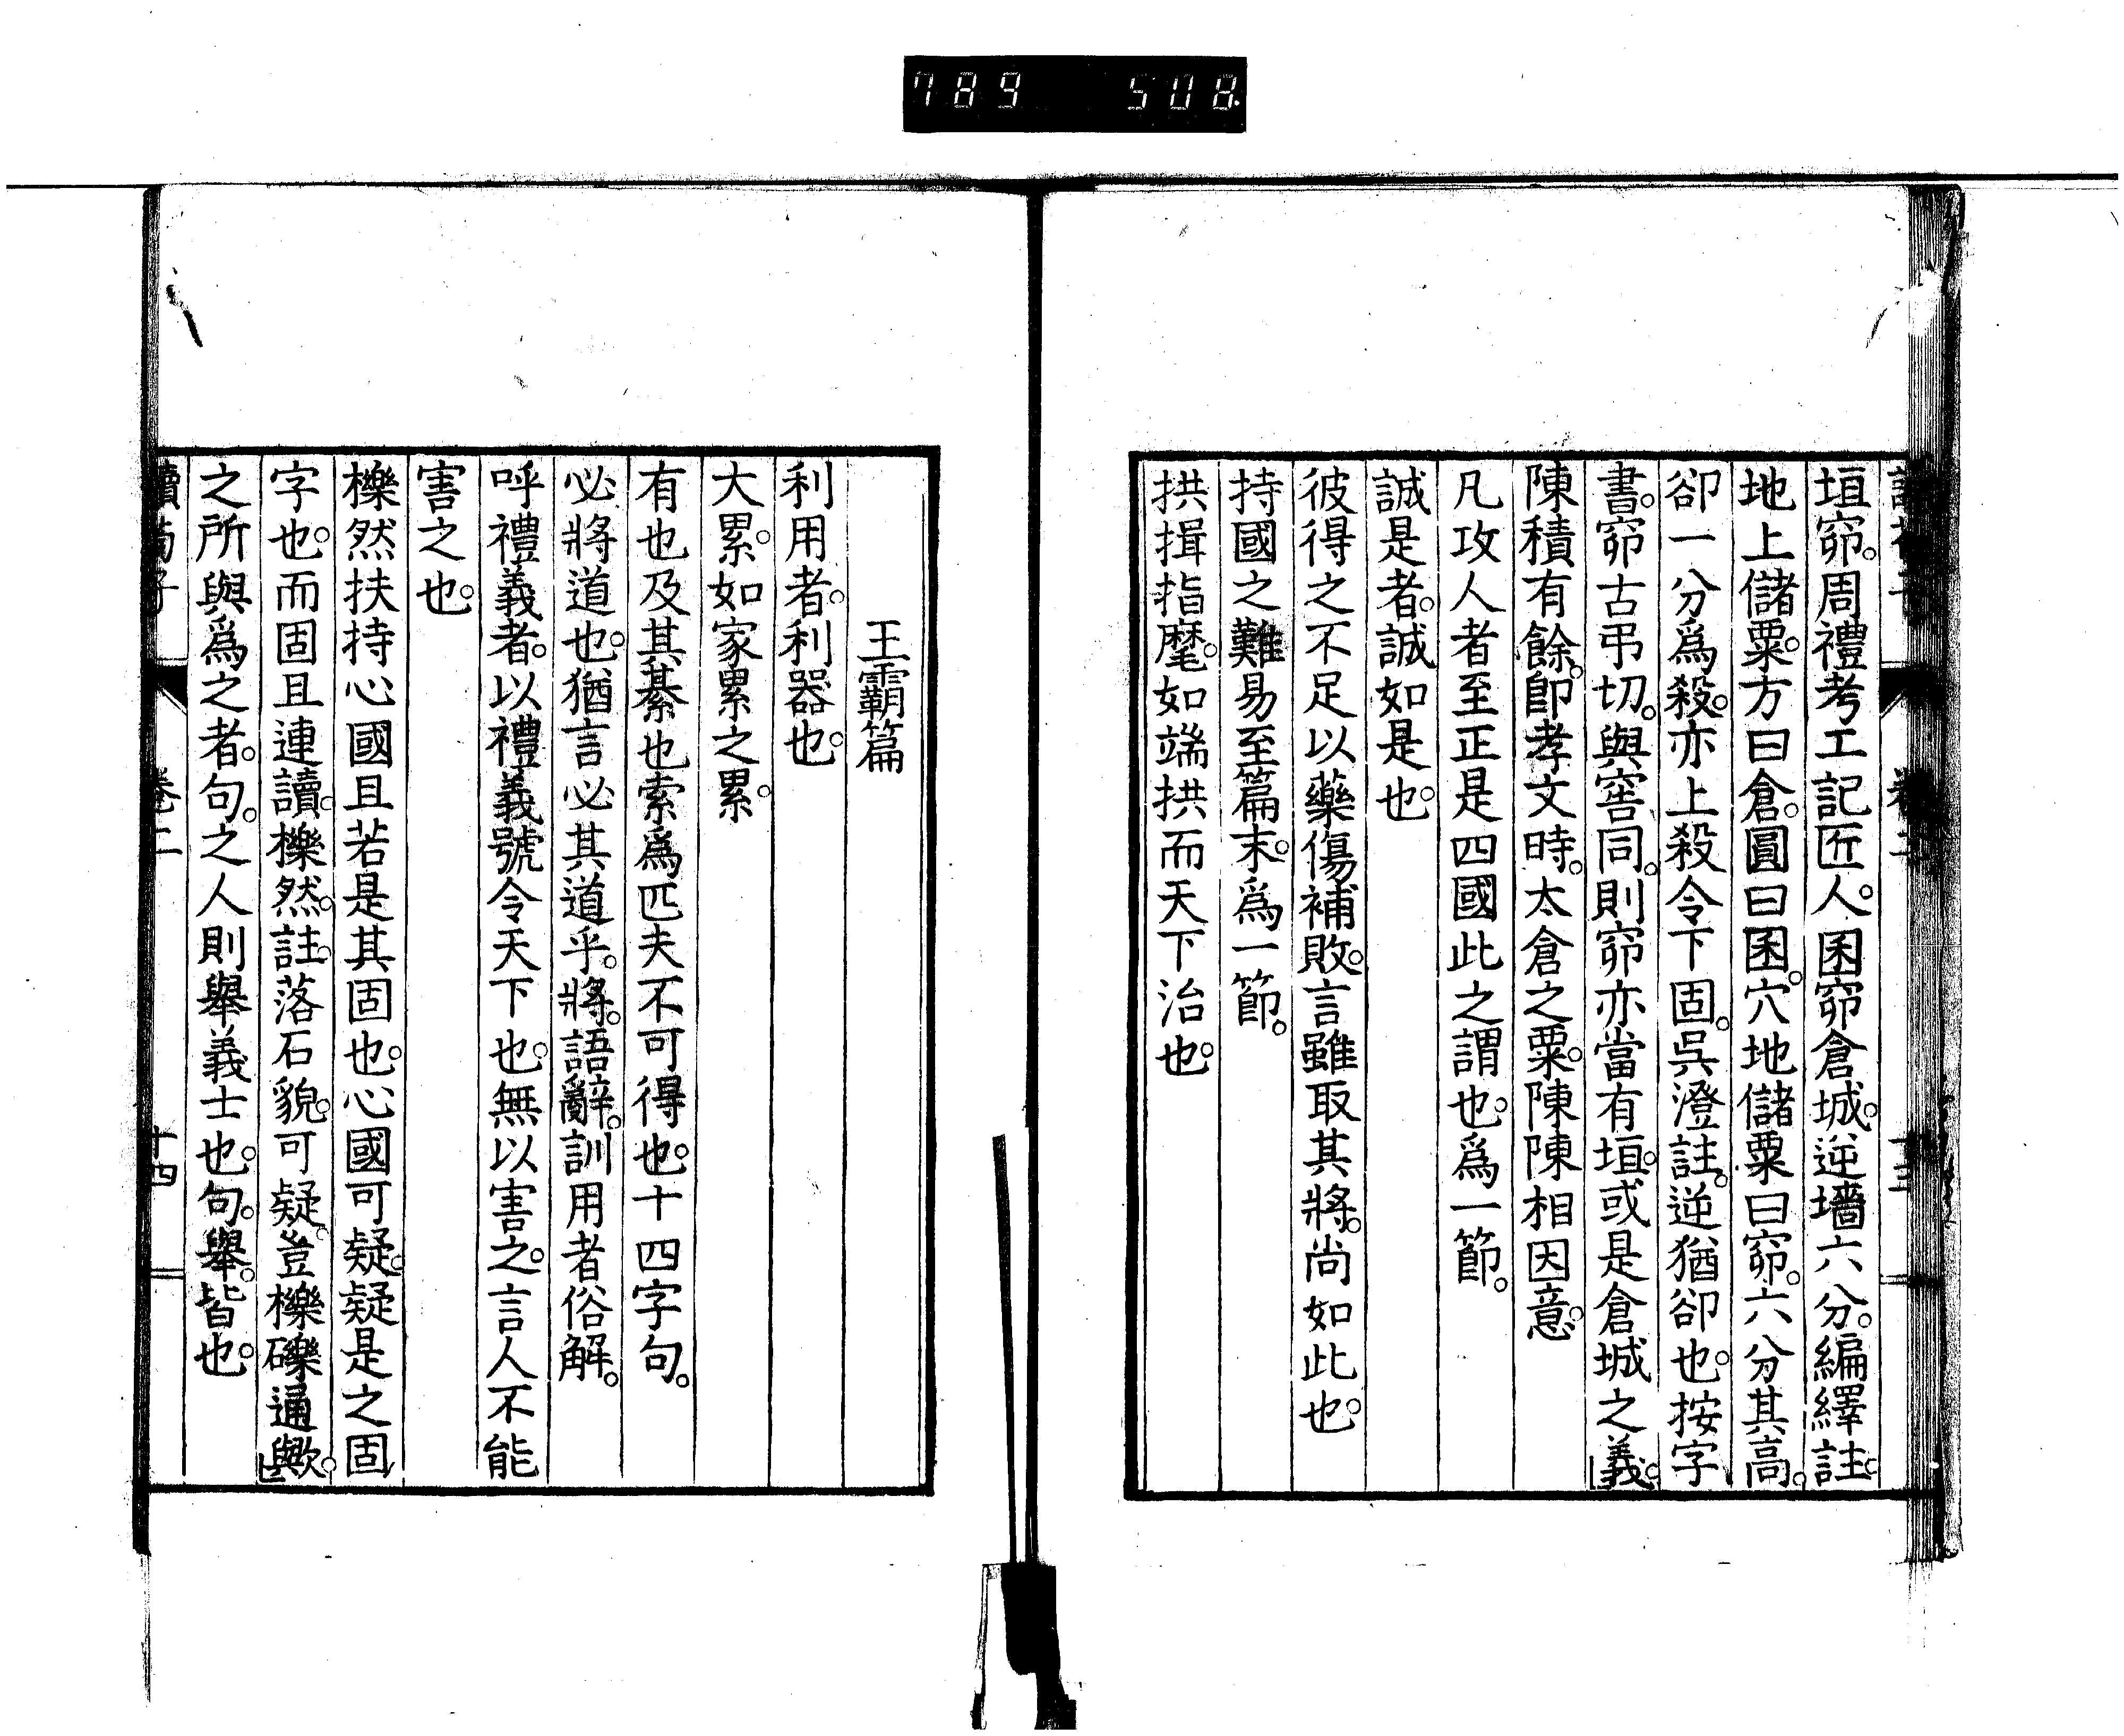 789 508
垣窌。周禮考工記匠人。囷窌倉城。逆墻六分。編繹註。
地上儲粟。方曰倉。圓曰囷。穴地儲粟曰窌。六分其高。
卻一分爲殺。亦上殺令下固。吳澄註。逆猶卻也。按字
書。窌古弔切。與窖同。則窌亦當有垣。或是倉城之義。
陳積有餘。卽孝文時。太倉之粟。陳陳相因意。
凡攻人者至正是四國此之謂也。爲一節。
誠是者。誠如是也。
彼得之不足以藥傷補敗。言雖取其將。尚如此也。
持國之難易至篇末。爲一節。
拱揖指麾。如端拱而天下治也。
王霸篇
利用者。利器也。
大累。如家累之累。
有也及其綦也索爲匹夫不可得也。十四字句。
必將道也。猶言必其道乎。將。語辭。訓用者俗解。
呼禮義者。以禮義號令天下也。無以害之。言人不能
害之也。
擽然扶持心國且若是其固也。心國可疑。疑是之固
字也。而固且連讀。擽然。註。落石貌。可疑。豈擽礫通歟。
之所與爲之者。句。之人則舉義士也。句。舉。皆也。
讀荀子 卷二 十四